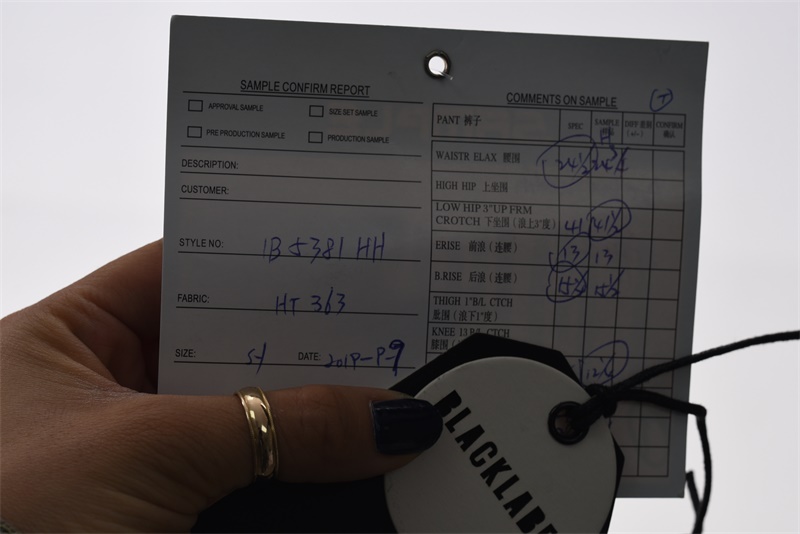 SAMPLE CONFIRM REPORT
APPROVAL SAMPLE
SIZE SET SAMPLE
PRE PRODUCTION SAMPLE
PRODUCTION SAMPLE
DESCRIPTION:
CUSTOMER:
STYLE NO: 1B5381 HH
FABRIC: HT 363
SIZE: DATE:
COMMENTS ON SAMPLE
PANT 裤子 SPEC SAMPLE DIFF CONFIRM
(+/-) 确认
WAISTR ELAX 腰围
HIGH HIP 上坐围
LOW HIP 3"UP FRM
CROTCH 下坐围（浪上3"度） 41 41½
F.RISE 前浪（连腰） 13 13
B.RISE 后浪（连腰）
THIGH 1"B/L CTCH
髀围（浪下1"度）
KNEE 13 B/L CTCH
膝围
BLACKLABE